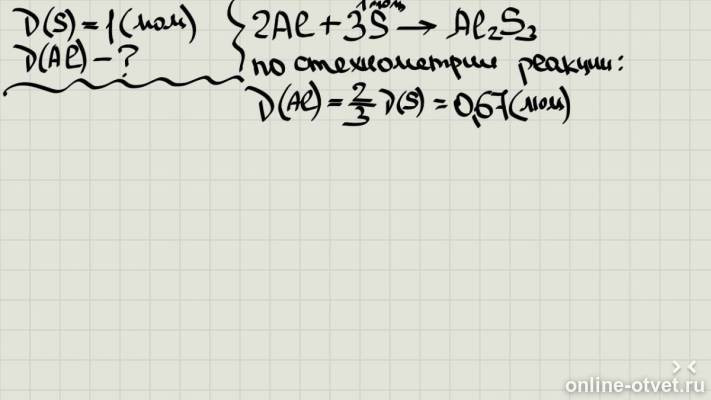 D(S) = 1 (моль)
D(Al) - ?
1 моль
2Al + 3S → Al₂S₃
по стехиометрии реакции:
D(Al) = 2/3 D(S) = 0,67 (моль)
online-otvet.ru